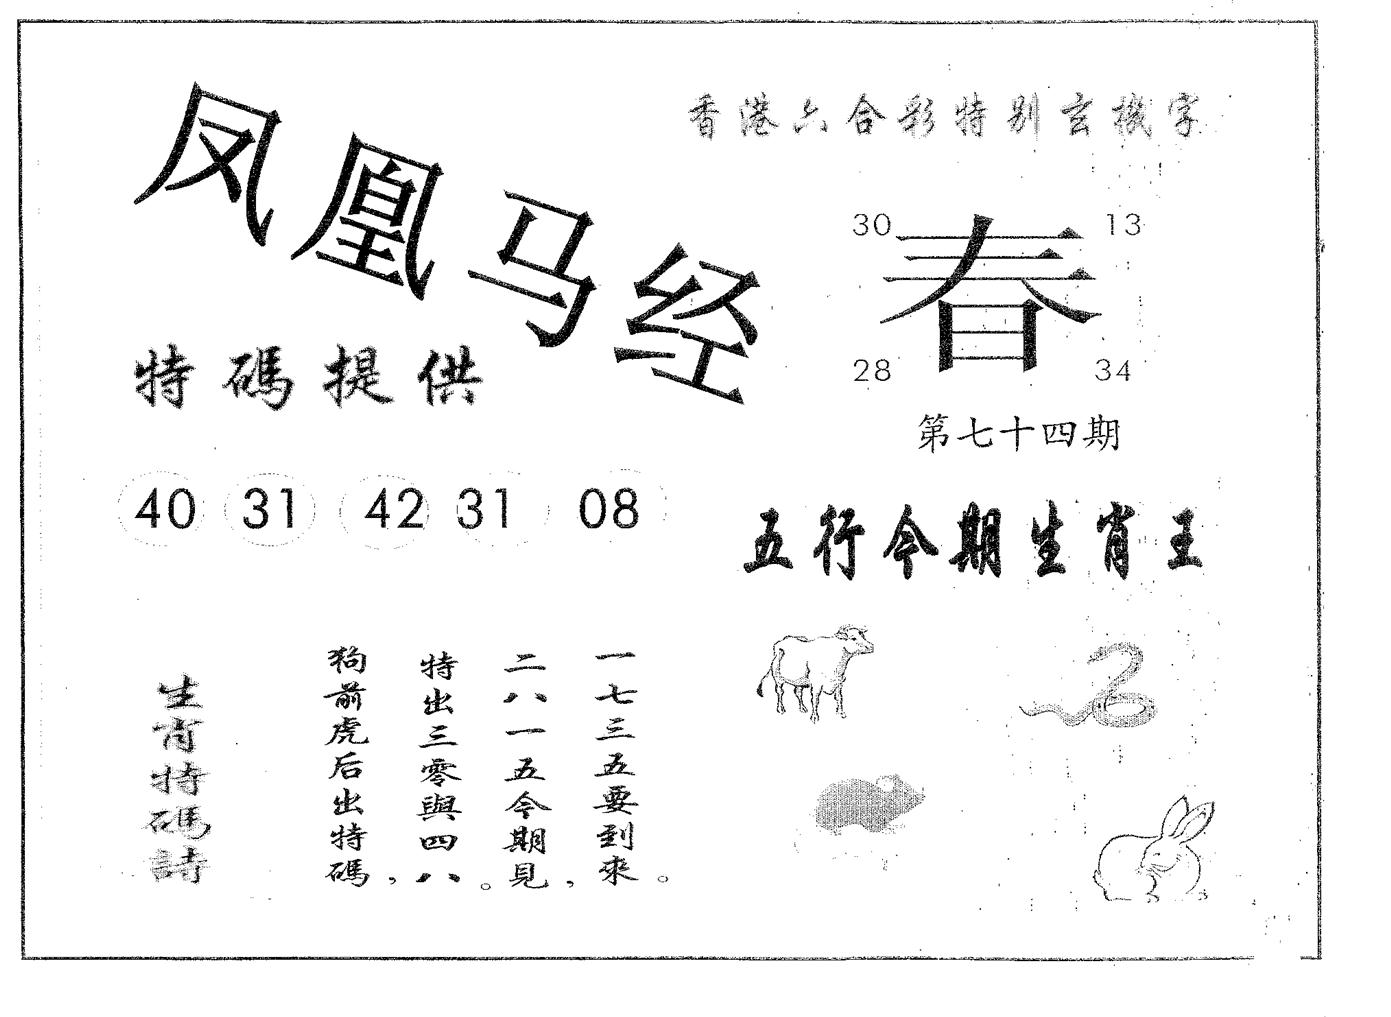 香港六合彩特别玄機字
凤凰马经
30 13
春
28 34
特碼提供
第七十四期
40 31 42 31 08
五行今期生肖王
生肖特碼詩
狗前虎后出特碼，
特出三零與四八。
二八一五今期見，
一七三五要到來。